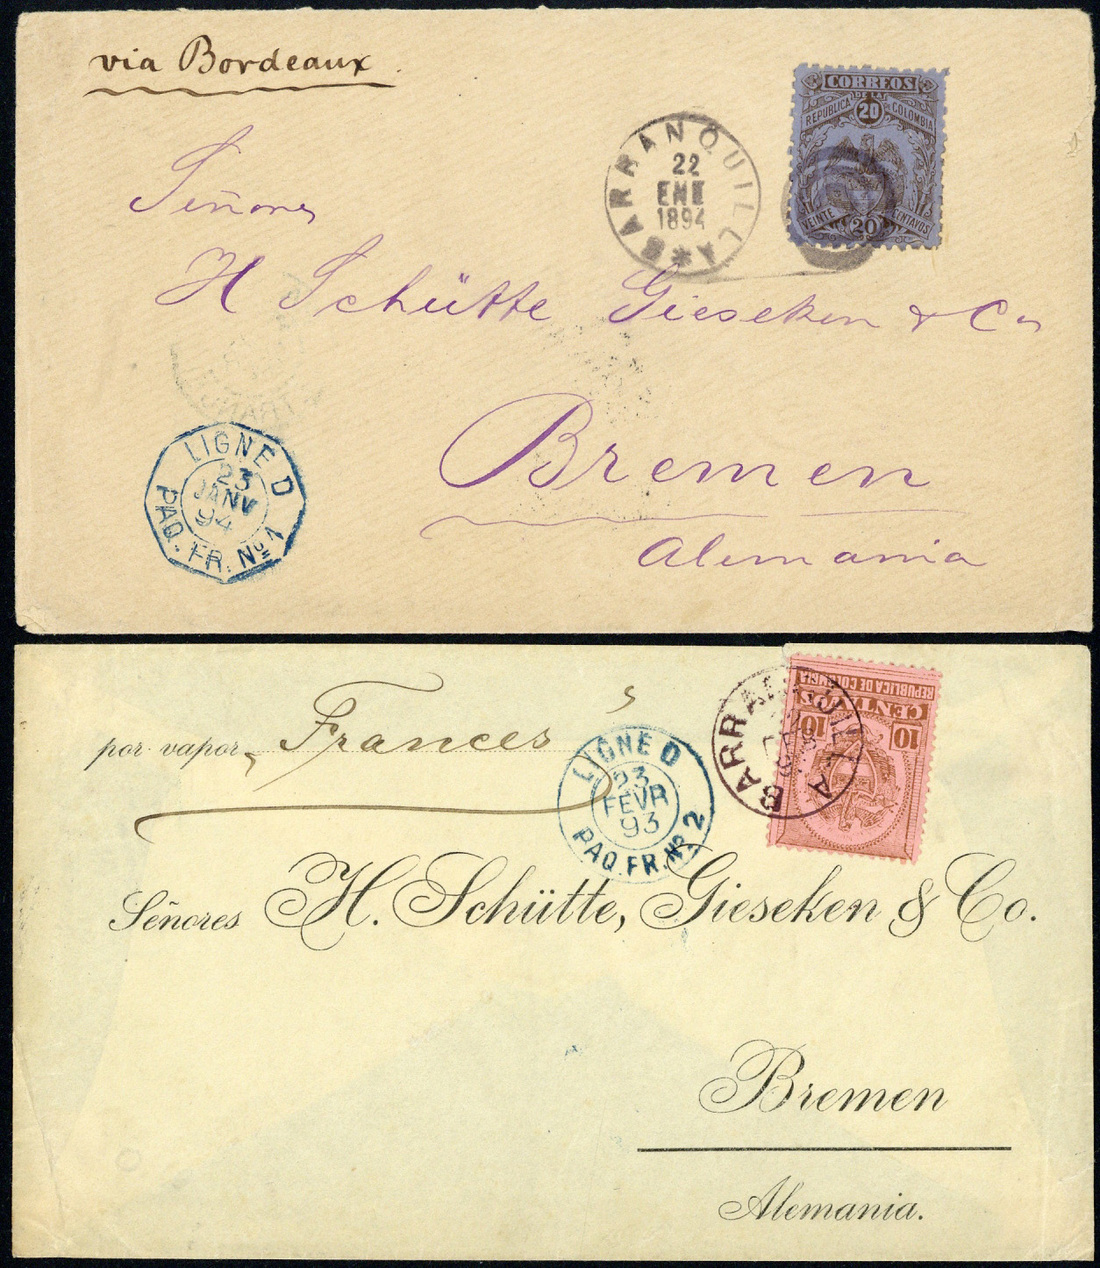 via Bordeaux
CORREOS
DE LA
REPUBLICA DE COLOMBIA
20
VEINTE 20 CENTAVOS
BARRANQUILLA
22
ENE
1894
Señores
H Schütte Gieseken & Co
Bremen
Alemania
LIGNE D
23
JANV
94
PAQ. FR. Nº 1
por vapor Frances
LIGNE D
23
FEVR
93
PAQ. FR. Nº 2
BARRANQUILLA
REPUBLICA DE COLOMBIA
CENTAVOS
10 10
Señores H. Schütte, Gieseken & Co.
Bremen
Alemania.